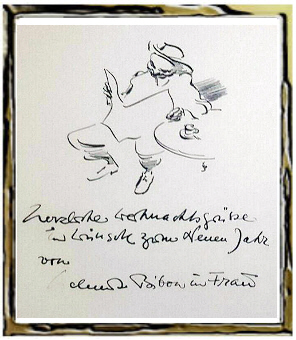 Herzliche Weihnachtsgrüße
u. Wünsche zum Neuen Jahr
von
u. Frau